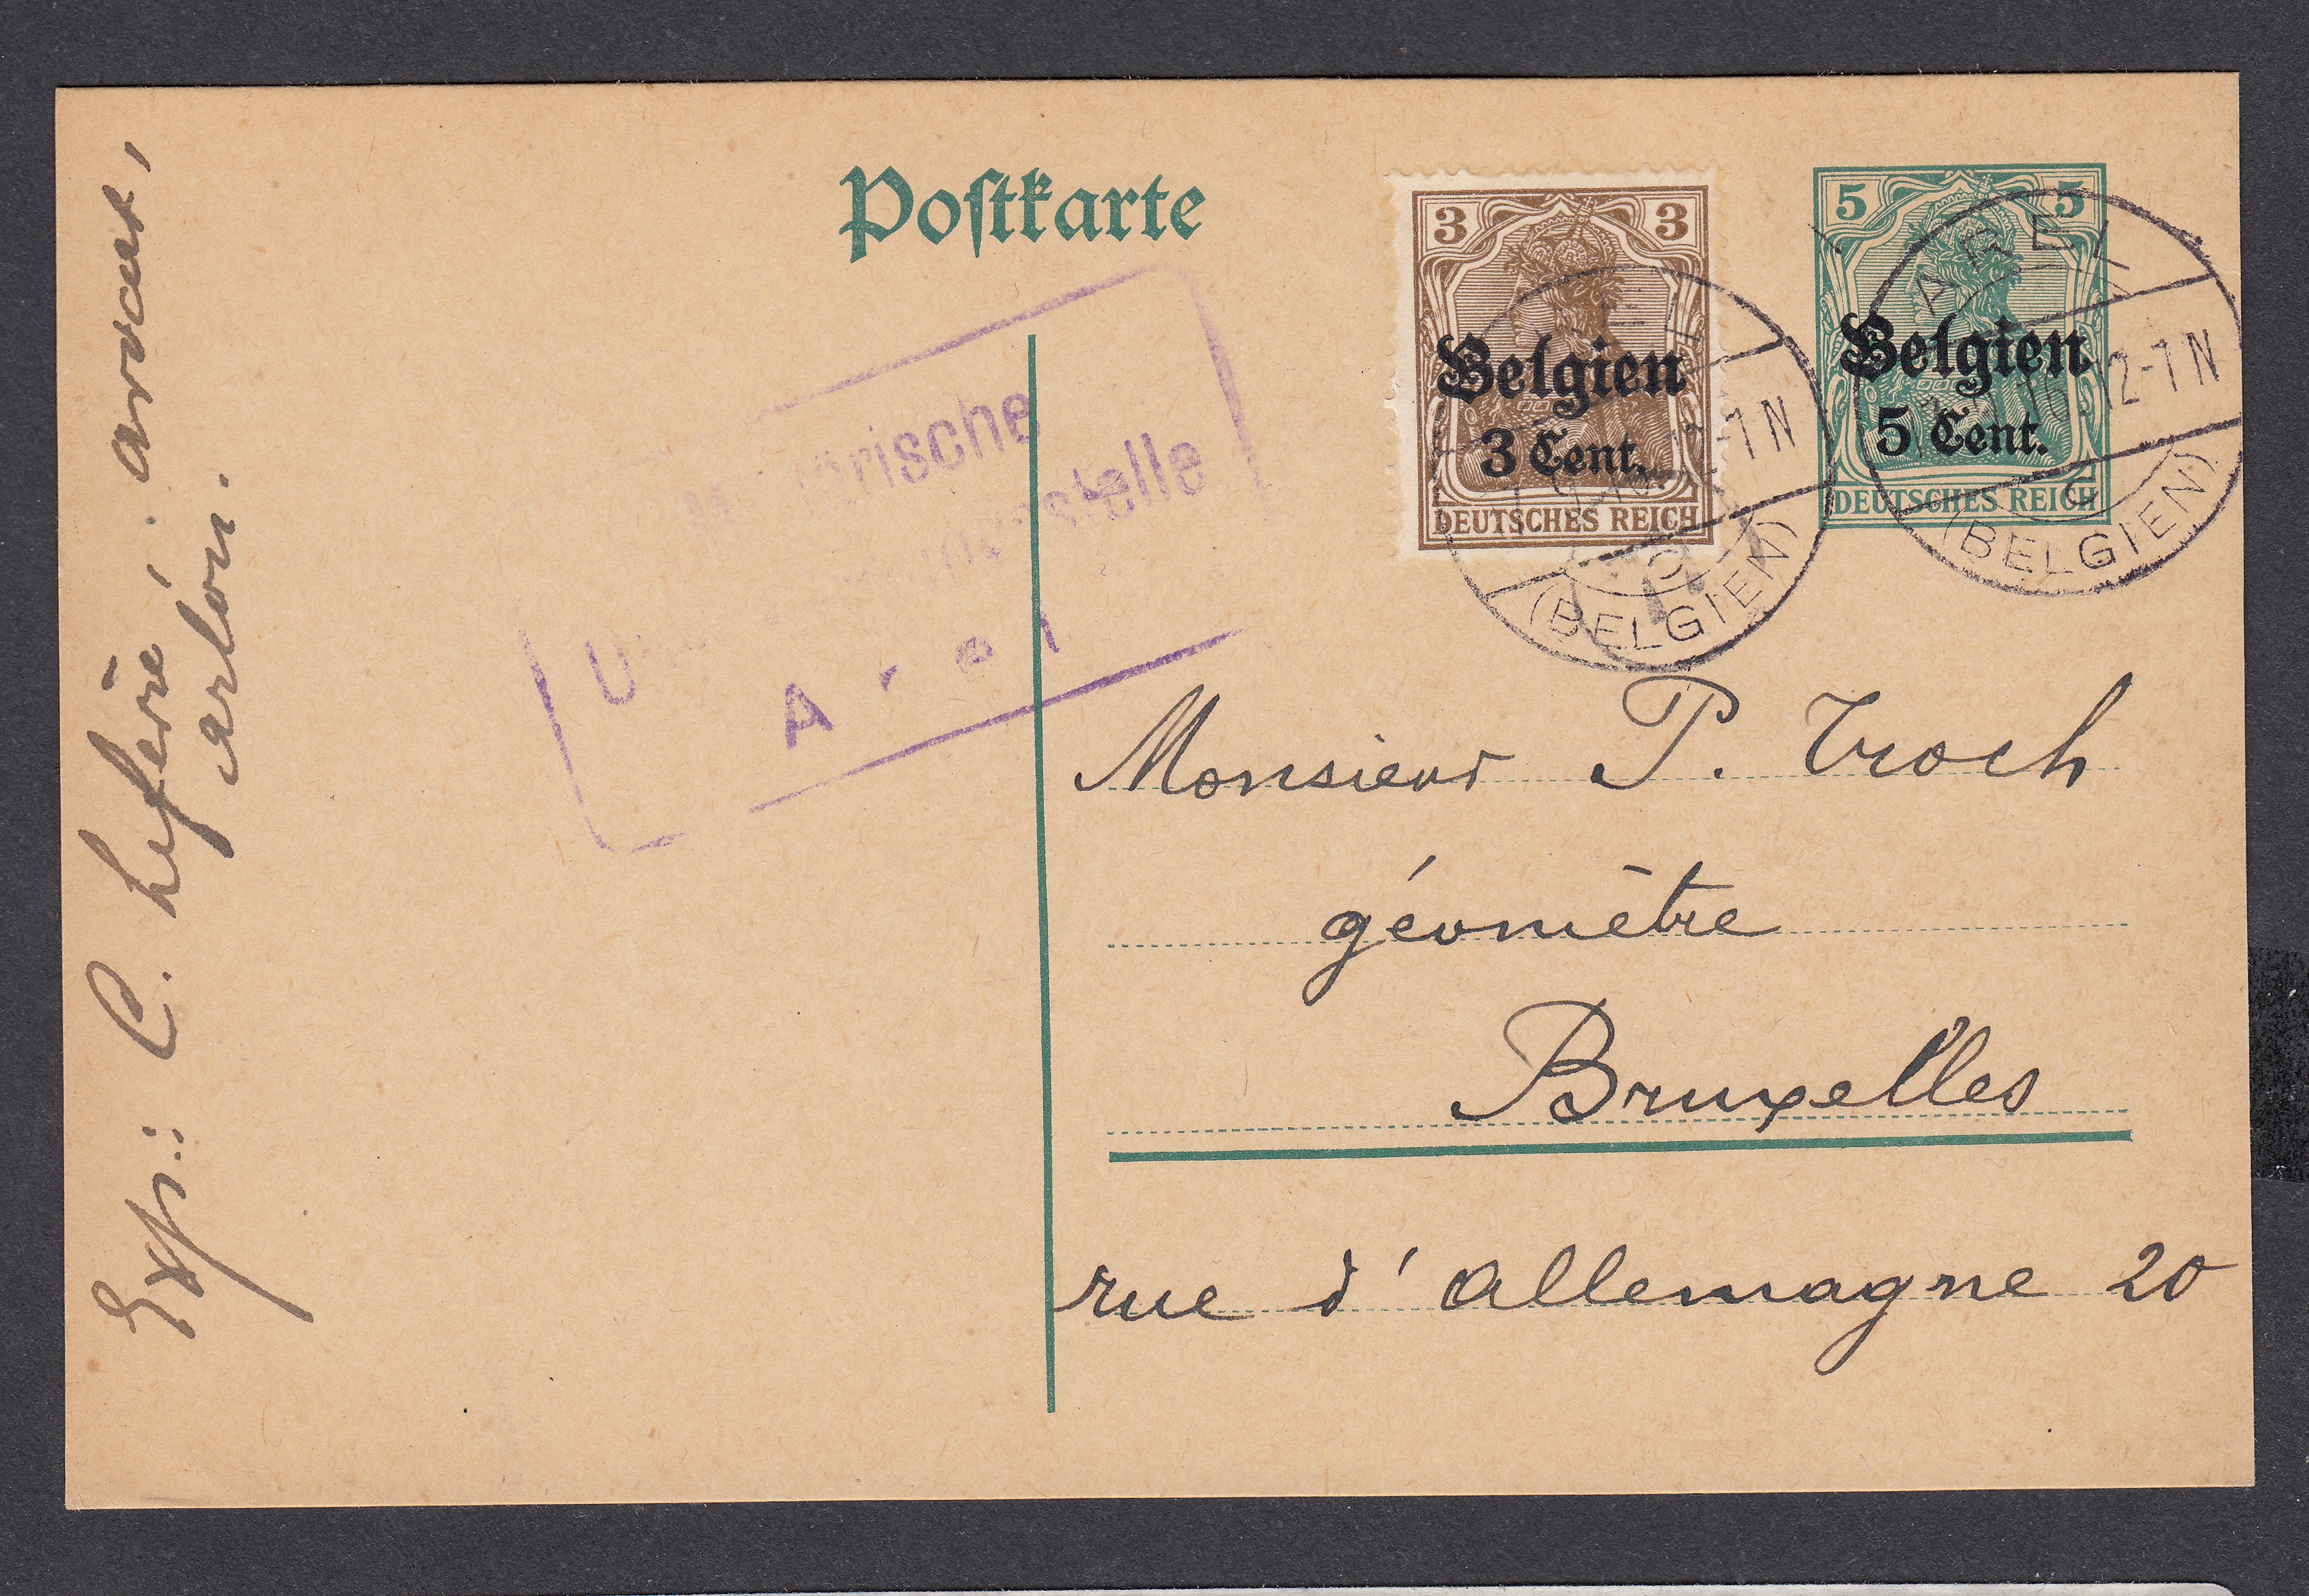 Postkarte
3 3
Belgien
3 Cent.
DEUTSCHES REICH
5 5
Belgien
5 Cent.
DEUTSCHES REICH
AREL
12-1N
(BELGIEN)
1N
(BELGIEN)
Militärische
stelle
Arel
Monsieur P. Troch
géomètre
Bruxelles
rue d'allemagne 20
Exp.: C.
arlon.